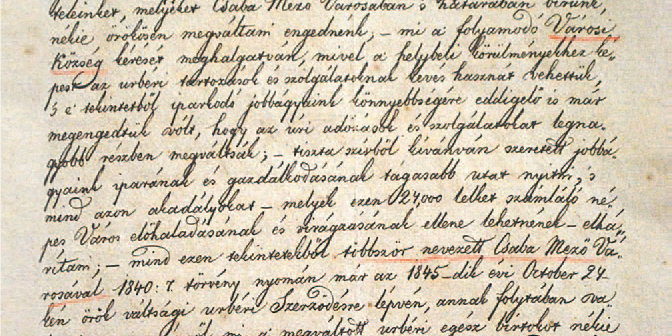 tekeinket, melyeket Csaba Mező Városában 's határában birunk,
nékie örökösen megváltani engednénk; – mi a folyamodó Városi
Község kérését meghalgatván, mivel a helybeli körülményekhez ké-
pest az urbéri tartozások és szolgálatoknak keves hasznát vehettük,
's e' tekintetből iparkodó jobbágyaink könnyebbségére eddigelő is már
megengedtük vólt, hogy az úri adózások és szolgálatokat legna-
gyobb részben megváltsák; – tiszta szivből kivánván szeretett jobbá-
gyaink iparának és gazdálkodásának tágasabb utat nyitni, 's
mind azon akadályokat – melyek ezen 24,000 lelket számláló né-
pes Város előhaladásának és virágzásának ellene lehetnének – elhá-
ritani; – mind ezen tekintetekből többször nevezett Csaba Mező Vá-
rosával 1840: 7. törvény nyomán már az 1845-dik évi October 24
kén örök váltsági urbéri Szerződésre lépvén, annak folytában
mi a megváltott urbéri egész birtokot nékie